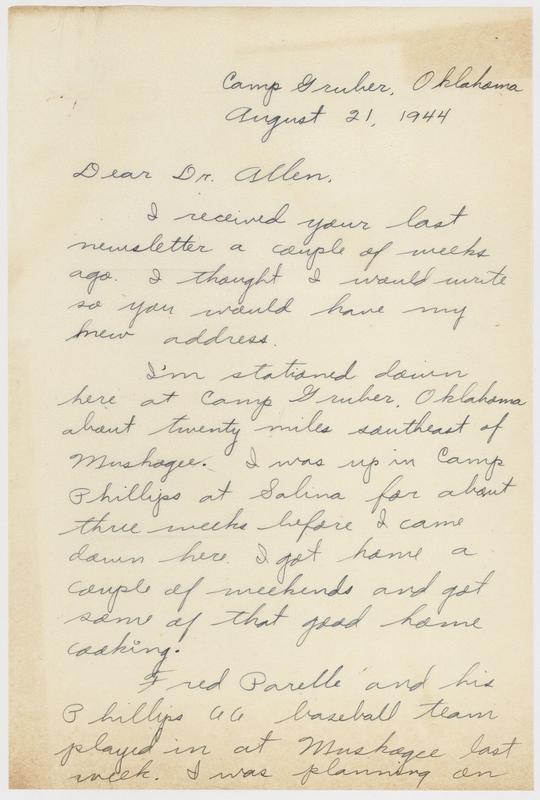 Camp Gruber, Oklahoma
August 21, 1944
Dear Dr. Allen,
I received your last
newsletter a couple of weeks
ago. I thought I would write
so you would have my
new address.
I'm stationed down
here at Camp Gruber, Oklahoma
about twenty miles southeast of
Muskogee. I was up in Camp
Phillips at Salina for about
three weeks before I came
down here. I got home a
couple of weekends and got
some of that good home
cooking.
Fred and his
Phillips 66 baseball team
played in at Muskogee last
week. I was planning on